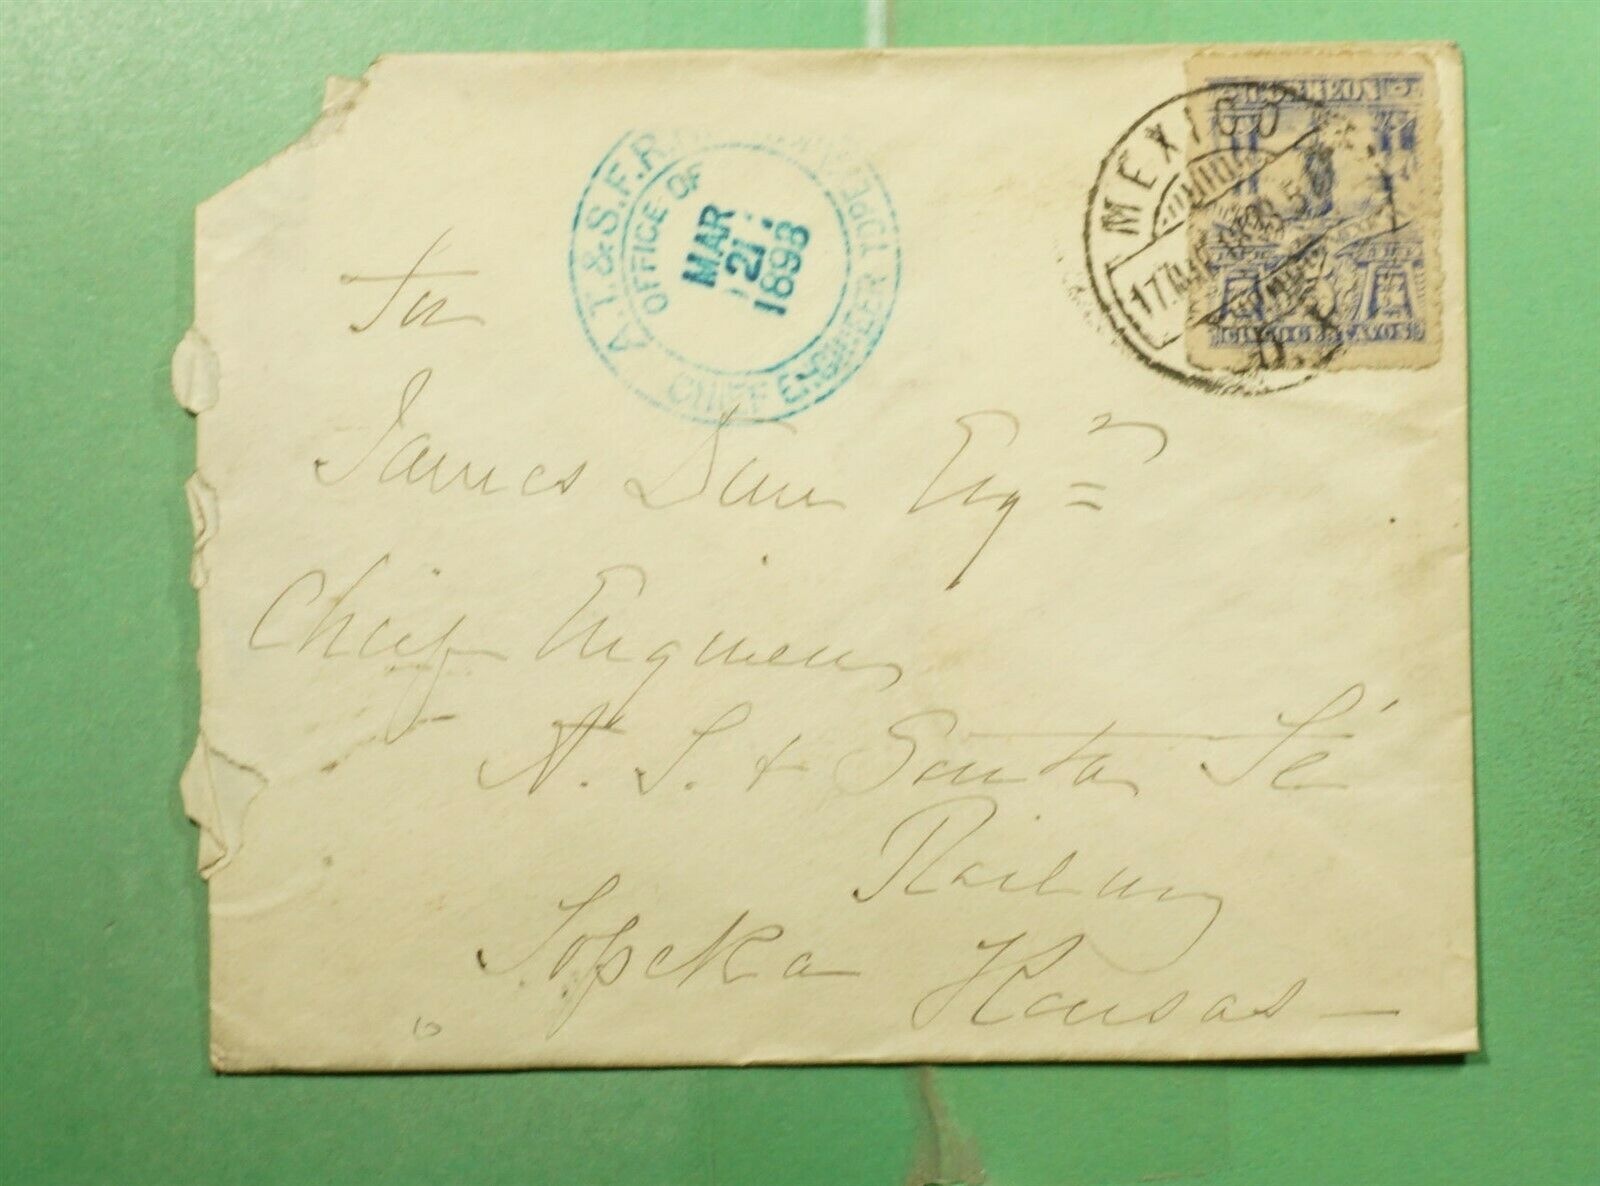 CORREOS
MEXICO
17 MAR
D.F.
CINCO CENTAVOS
A.T. & S.F.R.R.
OFFICE OF
MAR
21
1898
CHIEF ENGINEER TOPEKA
To
James Dun Esqr
Chief Engineer
A. T. & Santa Fé
Railway
Topeka Kansas
10